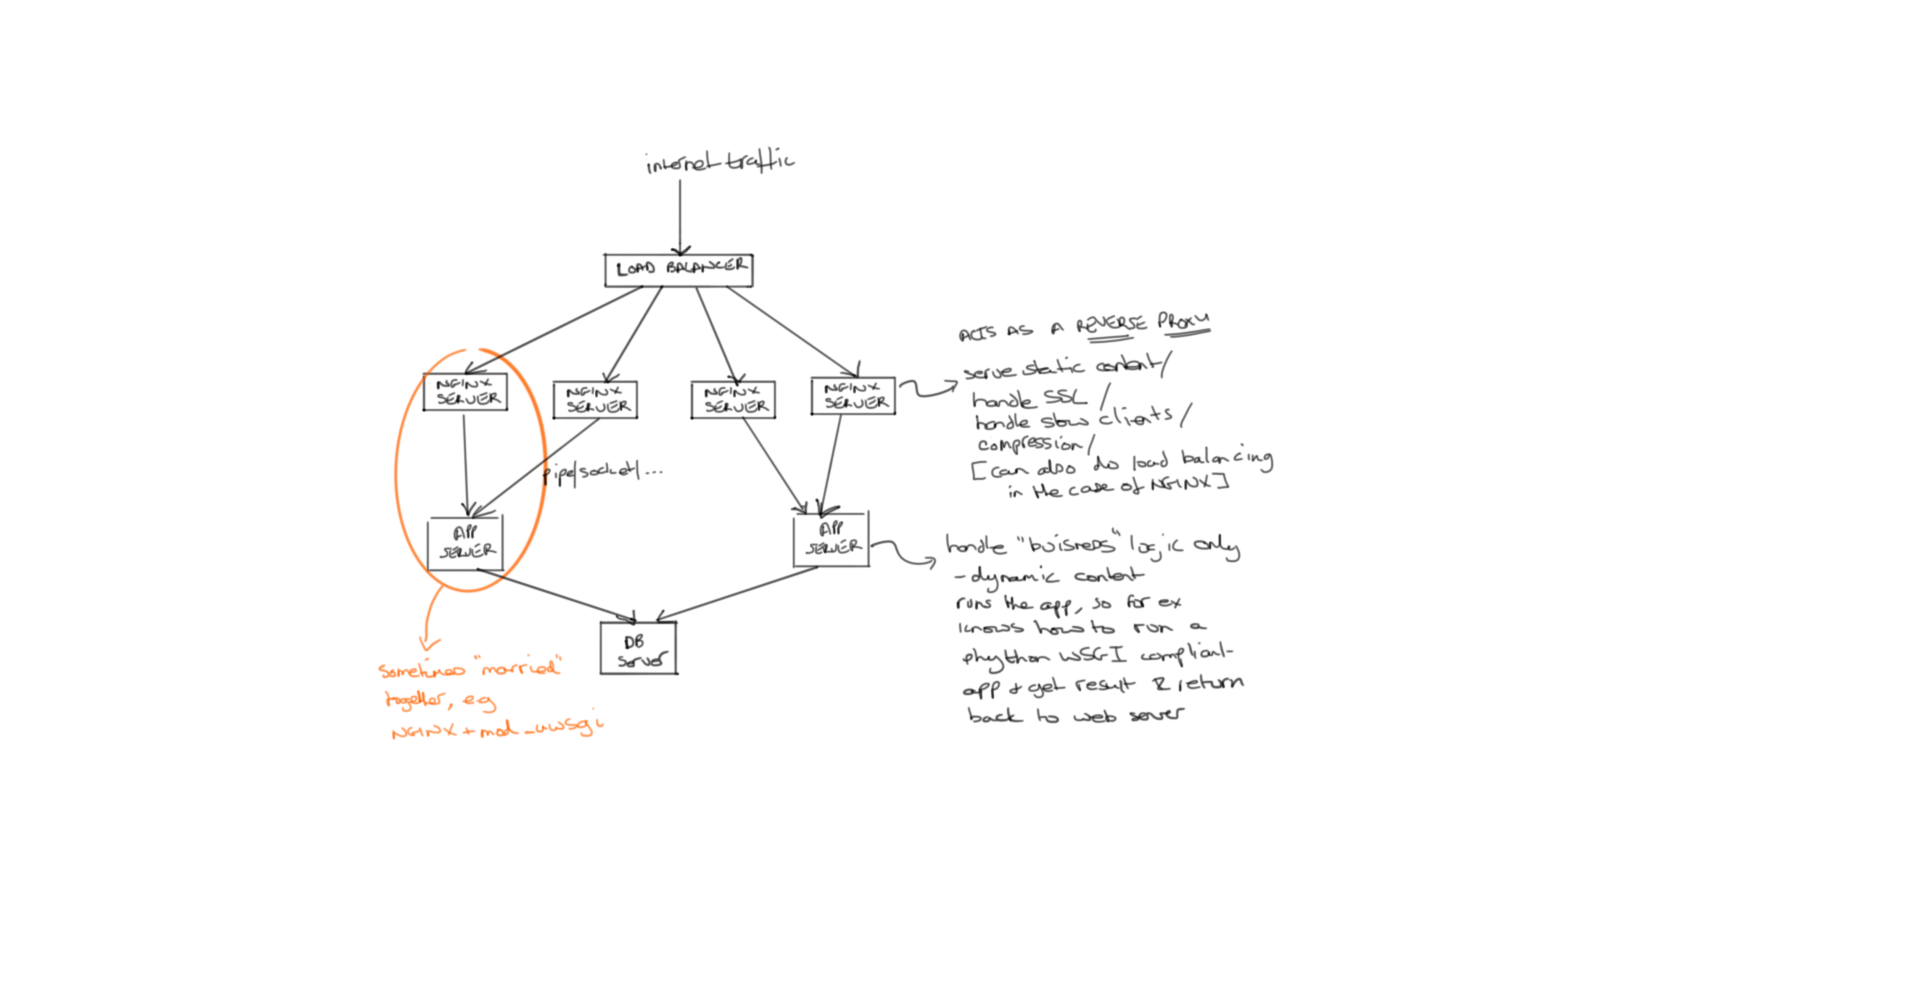 internet traffic
LOAD BALANCER
NGINX
SERVER
NGINX
SERVER
NGINX
SERVER
NGINX
SERVER
ACTS AS A REVERSE PROXY
serve static content/
handle SSL /
handle slow clients/
compression/
[can also do load balancing
in the case of NGINX]
pipe/socket/...
APP
SERVER
APP
SERVER
handle "buisness" logic only
- dynamic content
runs the app, so for ex
knows how to run a
phython WSGI compliant
app & get result & return
back to web server
DB
Server
Sometimes "married"
together, eg
NGINX + mod_uwsgi